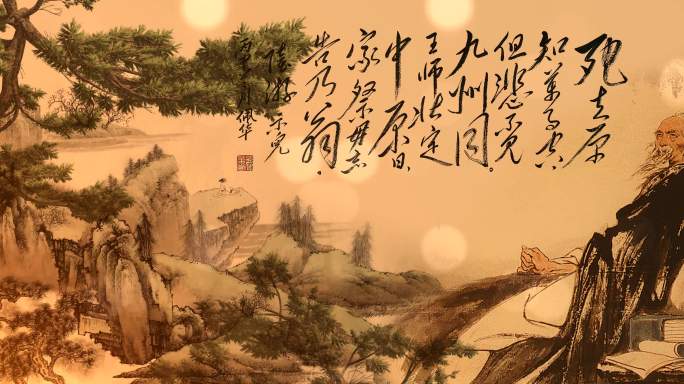 死去原
知萬事空
但悲不见
九州同。
王师北定
中原日,
家祭毋忘
告乃翁。
陆游示儿
月佩华